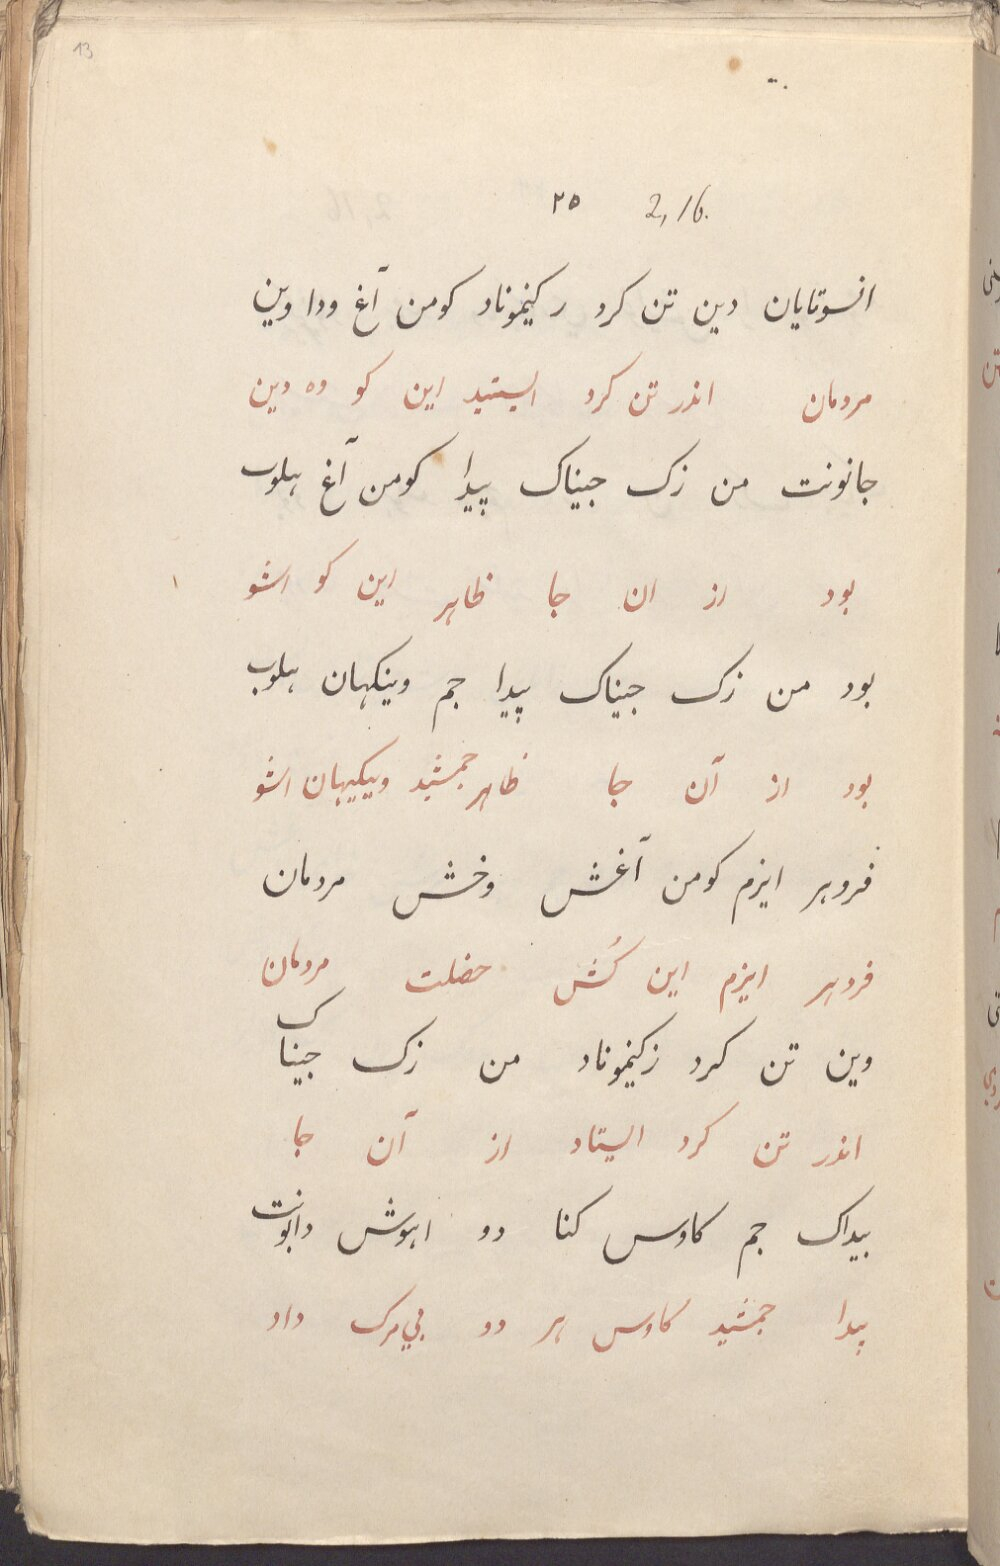 13
۲۵ 2,16.
انسوتایان دین تن کرد رکنیموناد کومن آغ ودا وین
مردمان اندر تن کرد الیستید این کو وه دین
جانونت من زک جیناک پیدا کومن آغ هلوب
بود از ان جا ظاهر این کو اشو
بود من زک جیناک پیدا جم وینکهان هلوب
بود از آن جا ظاهر جمشید ویکیهان اشو
فروهر ایزم کومن آغش وخش مردمان
فروهر ایزم این کُش حضلت مردمان
وین تن کرد زکنیموناد من زک جیناک
اندر تن کرد الیستاد از آن جا
بیداک جم کاوس کنا دو اهوش دابونت
پیدا جمشید کاوس هر دو بی مرک داد